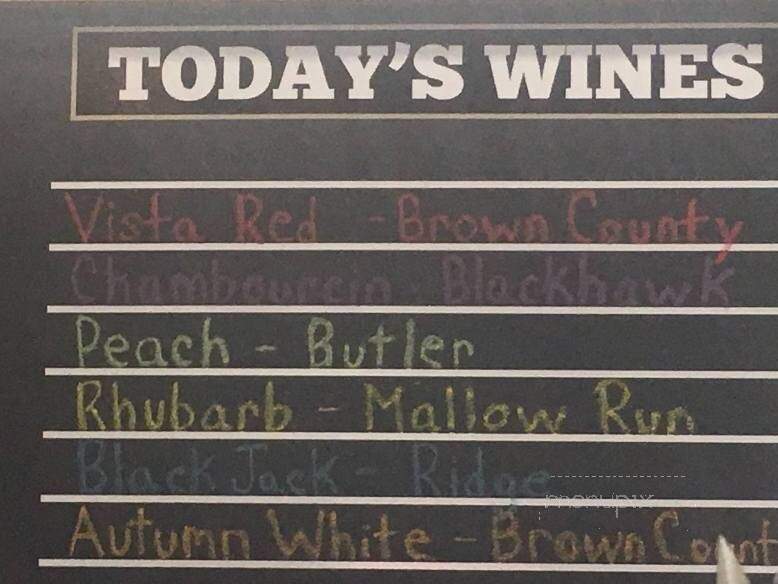 TODAY'S WINES
Vista Red - Brown County
Chambourcin - Blackhawk
Peach - Butler
Rhubarb - Mallow Run
Black Jack - Ridge
menupix
Autumn White - Brown Count